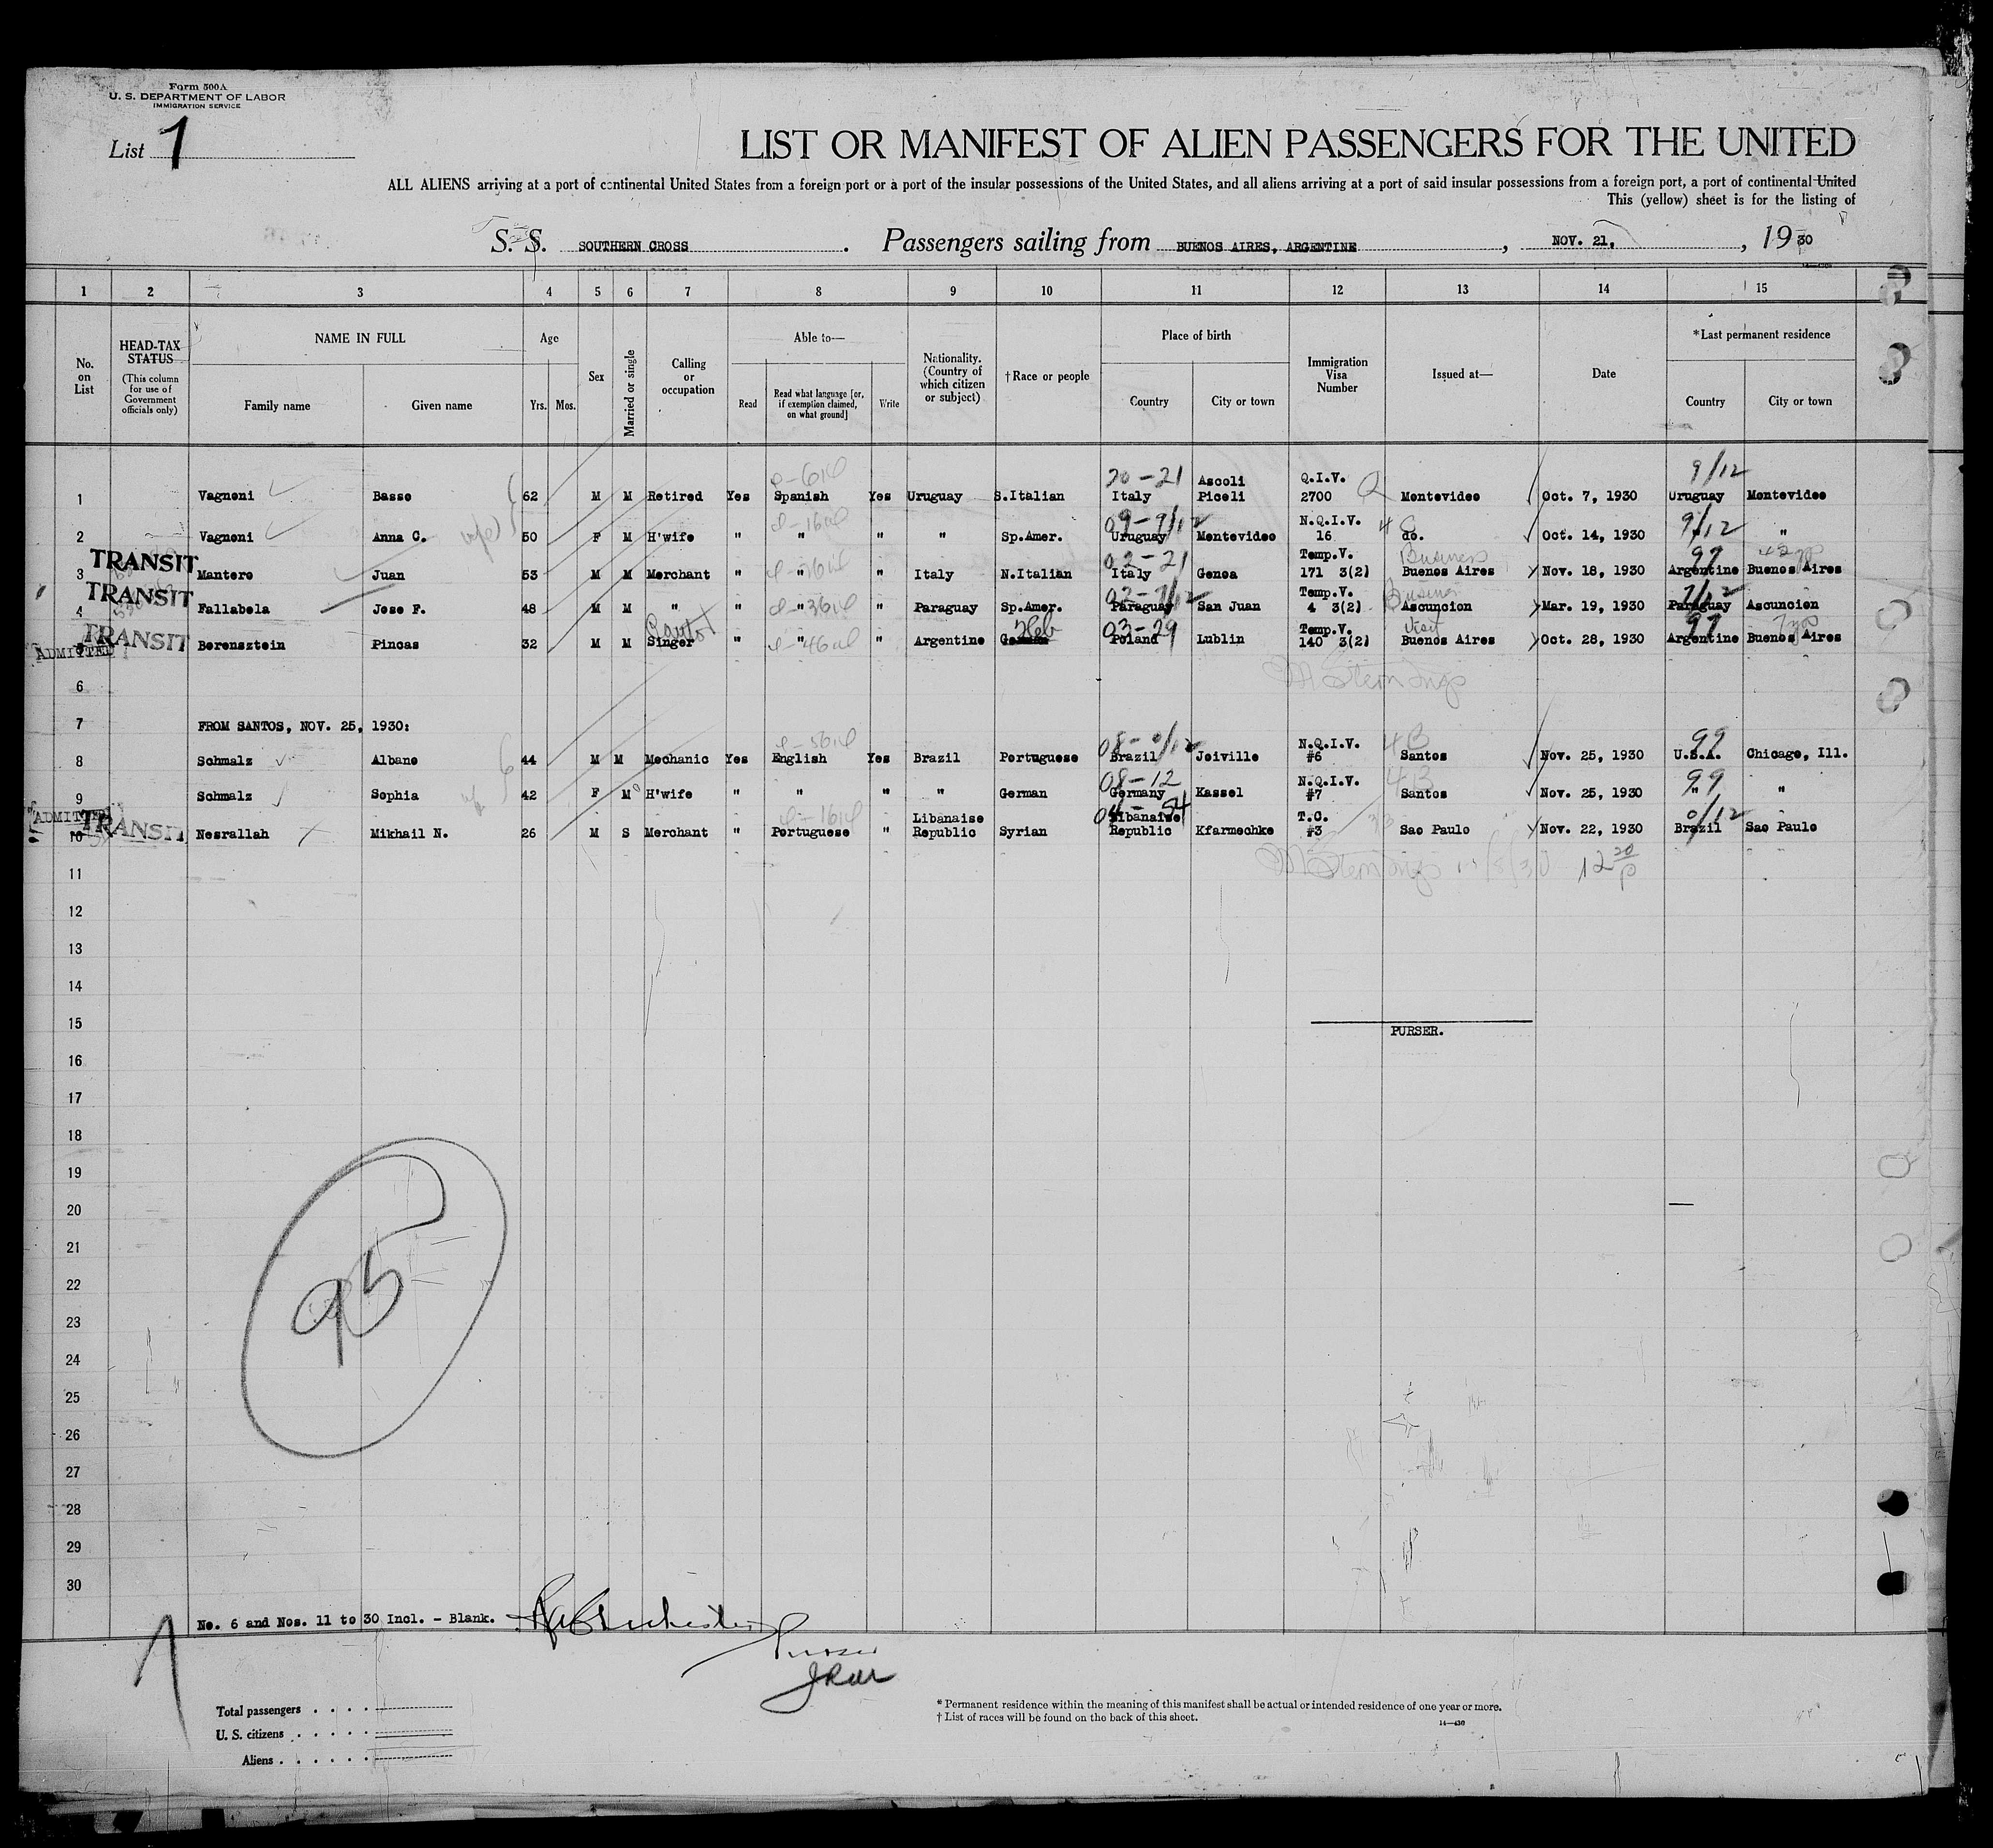 Form 500A
U. S. DEPARTMENT OF LABOR
IMMIGRATION SERVICE
List 1
LIST OR MANIFEST OF ALIEN PASSENGERS FOR THE UNITED
ALL ALIENS arriving at a port of continental United States from a foreign port or a port of the insular possessions of the United States, and all aliens arriving at a port of said insular possessions from a foreign port, a port of continental United
This (yellow) sheet is for the listing of
S. S. SOUTHERN CROSS . Passengers sailing from BUENOS AIRES, ARGENTINE , NOV. 21, , 19 30
1 2 3 4 5 6 7 8 9 10 11 12 13 14 15
No. on List
HEAD-TAX STATUS (This column for use of Government officials only)
NAME IN FULL
Family name Given name
Age
Yrs. Mos.
Sex
Married or single
Calling or occupation
Able to—
Read
Read what language [or, if exemption claimed, on what ground]
Write
Nationality. (Country of which citizen or subject)
†Race or people
Place of birth
Country City or town
Immigration Visa Number
Issued at—
Date
*Last permanent residence
Country City or town
20-21 9/12
1 Vagnoni Basso 62 M M Retired Yes Spanish Yes Uruguay S.Italian Italy Ascoli Piceli Q.I.V. 2700 Q Montevideo Oct. 7, 1930 Uruguay Montevideo
09-9/12 9/12
2 Vagnoni Anna C. 50 F M H'wife " " " " Sp.Amer. Uruguay Montevideo N.Q.I.V. 16 do. Oct. 14, 1930 "
TRANSIT 02-21 Business 97
3 Mantero Juan 53 M M Merchant " " " Italy N.Italian Italy Genoa Temp.V. 171 3(2) Buenos Aires Nov. 18, 1930 Argentine Buenos Aires
TRANSIT
4 Fallabela Jose F. 48 M M " " " " Paraguay Sp.Amer. Paraguay San Juan Temp.V. 4 3(2) Ascuncion Mar. 19, 1930 Paraguay Ascuncion
TRANSIT Heb 03-29 Visit 97
ADMITTED Berensztein Pincas 32 M M Singer " " " Argentine German Poland Lublin Temp.V. 140 3(2) Buenos Aires Oct. 28, 1930 Argentine Buenos Aires
6
7 FROM SANTOS, NOV. 25, 1930:
99
8 Schmalz Albano 44 M M Mechanic Yes English Yes Brazil Portuguese Brazil Joiville N.Q.I.V. #6 4B Santos Nov. 25, 1930 U.S.A. Chicago, Ill.
08-12 99
9 Schmalz Sophia 42 F M H'wife " " " " German Germany Kassel N.Q.I.V. #7 4B Santos Nov. 25, 1930 " "
ADMITTED TRANSIT 0/12
10 Nesrallah Mikhail N. 26 M S Merchant " Portuguese " Libanaise Republic Syrian Libanaise Republic Kfarmechke T.C. #3 Sao Paulo Nov. 22, 1930 Brazil Sao Paulo
11
12
13
14
15
PURSER.
16
17
18
19
20
21
22
23
24
25
26
27
28
29
30
95
No. 6 and Nos. 11 to 30 Incl. - Blank.
Purser
1
Total passengers
U. S. citizens
Aliens
* Permanent residence within the meaning of this manifest shall be actual or intended residence of one year or more.
† List of races will be found on the back of this sheet.
14—430